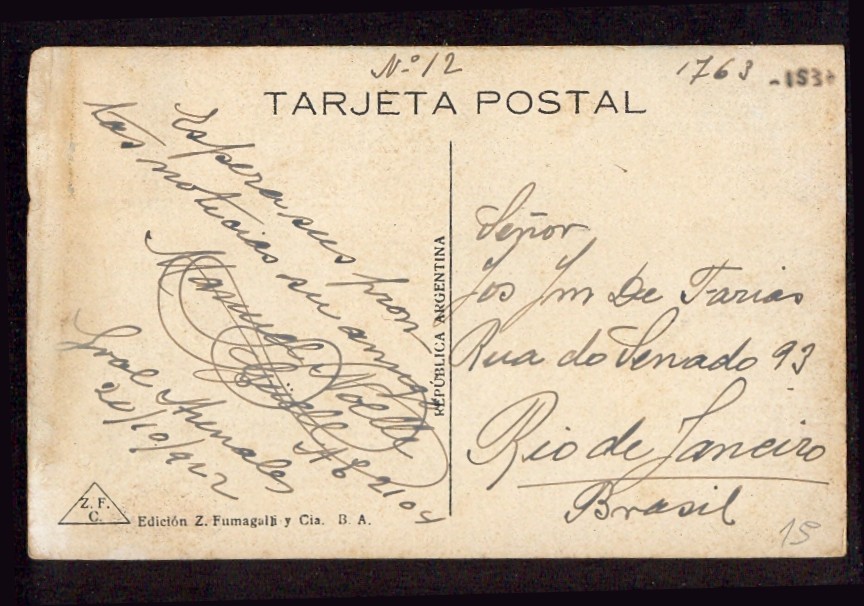 Nº 12
1763
-1534
TARJETA POSTAL
Espera sus pron
tas noticias su amigo
Manuel Noelle
Gral Arenales
20/10/922
REPÚBLICA ARGENTINA
Señor
Jos Jm De Farias
Rua do Senado 93
Rio de Janeiro
Brasil
15
Z. F.
C.
Edición Z. Fumagalli y Cia. B. A.